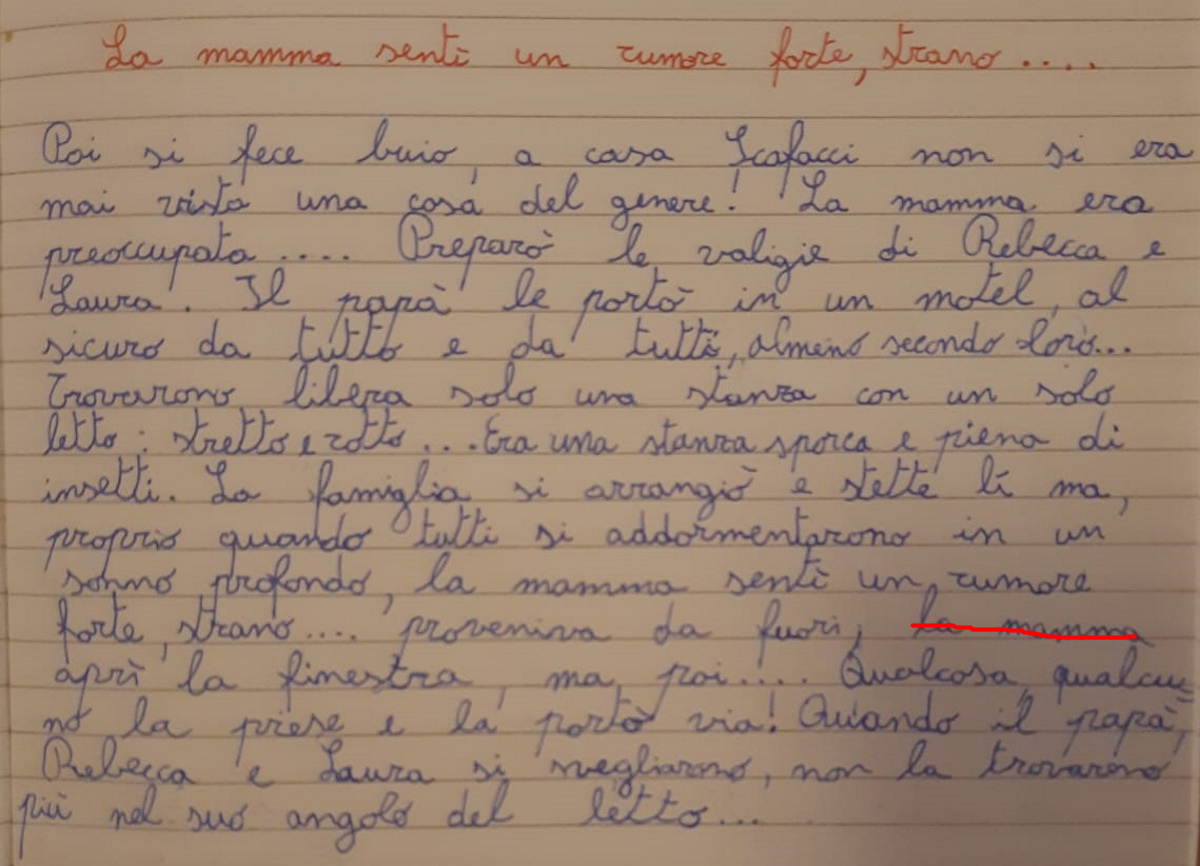 La mamma sentì un rumore forte, strano....
Poi si fece buio, a casa Scafacci non si era
mai vista una cosa del genere! La mamma era
preoccupata .... Preparò le valigie di Rebecca e
Laura. Il papà le portò in un motel, al
sicuro da tutto e da tutti, almeno secondo loro...
Trovarono libera solo una stanza con un solo
letto: stretto e rotto ... Era una stanza sporca e piena di
insetti. La famiglia si arrangiò e stette lì ma,
proprio quando tutti si addormentarono in un
sonno profondo, la mamma sentì un rumore
forte, strano.... proveniva da fuori, la mamma
aprì la finestra, ma poi..... Qualcosa, qualcu
no la prese e la portò via! Quando il papà,
Rebecca e Laura si svegliarono, non la trovarono
più nel suo angolo del letto...